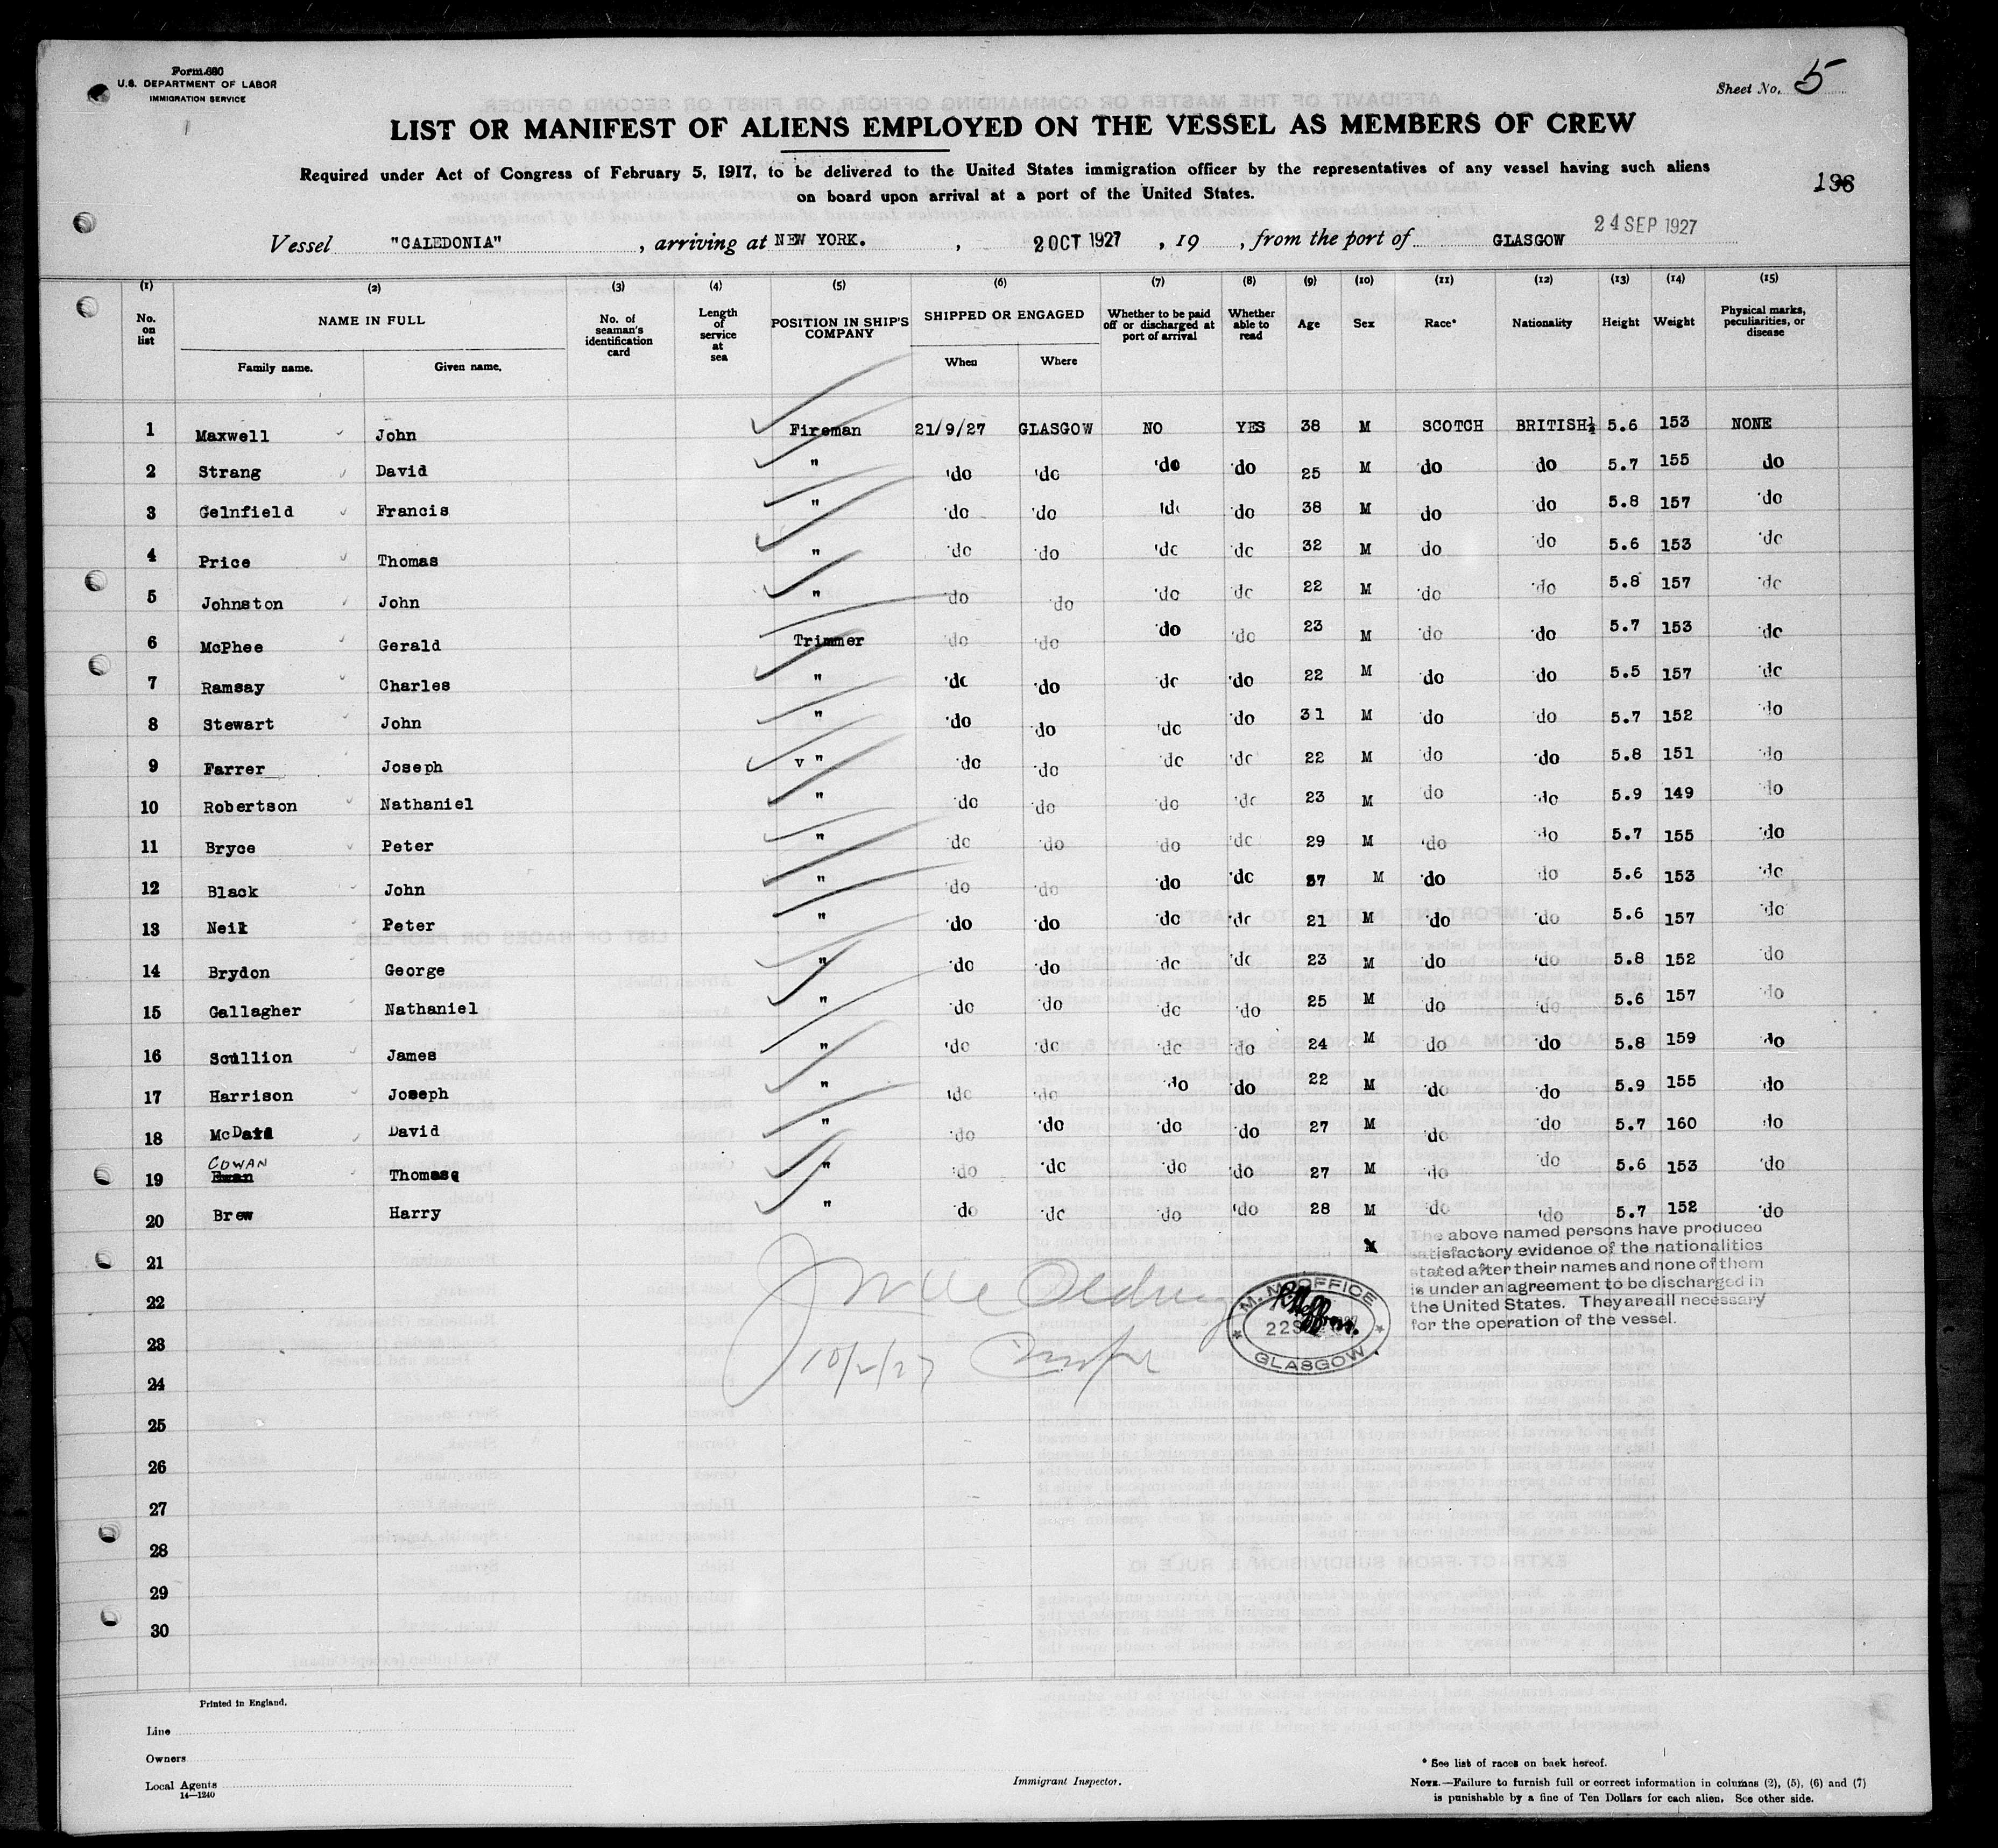 Form 680
U.S. DEPARTMENT OF LABOR
IMMIGRATION SERVICE
Sheet No. 5
LIST OR MANIFEST OF ALIENS EMPLOYED ON THE VESSEL AS MEMBERS OF CREW
Required under Act of Congress of February 5, 1917, to be delivered to the United States immigration officer by the representatives of any vessel having such aliens
on board upon arrival at a port of the United States.
Vessel "CALEDONIA" , arriving at NEW YORK. , 2 OCT 1927 , 19 , from the port of GLASGOW 24 SEP 1927
(1) (2) (3) (4) (5) (6) (7) (8) (9) (10) (11) (12) (13) (14) (15)
No. on list NAME IN FULL Family name. Given name. No. of seaman's identification card Length of service at sea POSITION IN SHIP'S COMPANY SHIPPED OR ENGAGED When Where Whether to be paid off or discharged at port of arrival Whether able to read Age Sex Race* Nationality Height Weight Physical marks, peculiarities, or disease
1 Maxwell John Fireman 21/9/27 GLASGOW NO YES 38 M SCOTCH BRITISH 5.6 153 NONE
2 Strang David " do do do do 25 M do do 5.7 155 do
3 Gelnfield Francis " do do do do 38 M do do 5.8 157 do
4 Price Thomas " do do do do 32 M do do 5.6 153 do
5 Johnston John " do do do do 22 M do do 5.8 157 do
6 McPhee Gerald Trimmer do do do do 23 M do do 5.7 153 do
7 Ramsay Charles " do do do do 22 M do do 5.5 157 do
8 Stewart John " do do do do 31 M do do 5.7 152 do
9 Farrer Joseph v " do do do do 22 M do do 5.8 151 do
10 Robertson Nathaniel " do do do do 23 M do do 5.9 149 do
11 Bryce Peter " do do do do 29 M do do 5.7 155 do
12 Black John " do do do do 37 M do do 5.6 153 do
13 Neil Peter " do do do do 21 M do do 5.6 157 do
14 Brydon George " do do do do 23 M do do 5.8 152 do
15 Gallagher Nathaniel " do do do do 25 M do do 5.6 157 do
16 Scullion James " do do do do 24 M do do 5.8 159 do
17 Harrison Joseph " do do do do 22 M do do 5.9 155 do
18 McDaid David " do do do do 27 M do do 5.7 160 do
19 COWAN Thomas " do do do do 27 M do do 5.6 153 do
20 Brew Harry " do do do do 28 M do do 5.7 152 do
21
22
23
24
25
26
27
28
29
30
The above named persons have produced
satisfactory evidence of the nationalities
stated after their names and none of them
is under an agreement to be discharged in
the United States. They are all necessary
for the operation of the vessel.
M. M. OFFICE
22 S
GLASGOW
10/2/27
Printed in England.
Line
Owners
Local Agents
14—1240
Immigrant Inspector.
* See list of races on back hereof.
NOTE.—Failure to furnish full or correct information in columns (2), (5), (6) and (7)
is punishable by a fine of Ten Dollars for each alien. See other side.